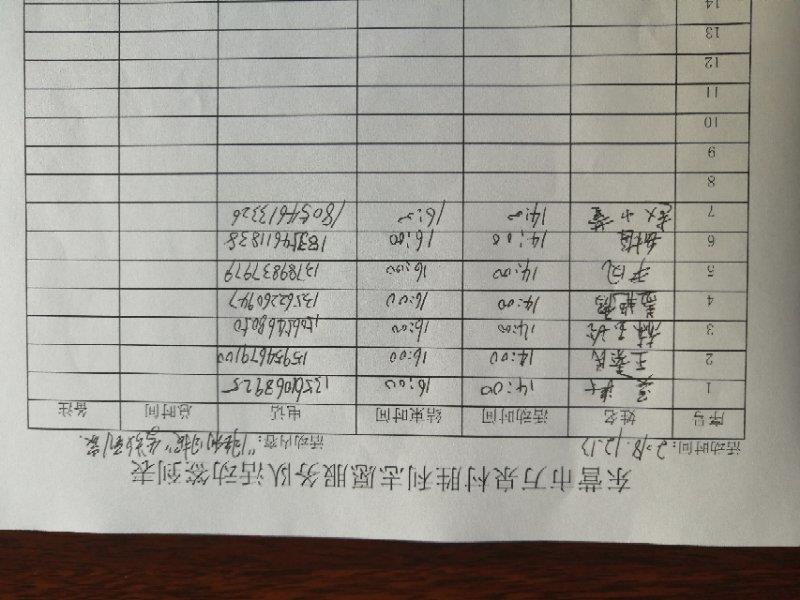 东营市万泉村胜利志愿服务队活动签到表
活动时间：2018.12.17 活动内容："胜利日报"
序号 姓名 活动时间 结束时间 电话 总时间 备注
1 14:00 16:00 13561068925
2 王秦民 14:00 16:00 15954679100
3 14:00 16:00 15065468050
4 14:00 16:00 13562260947
5 14:00 16:00 13789837979
6 14:00 16:00 18354611838
7 14:00 16:00 18054613326
8
9
10
11
12
13
14